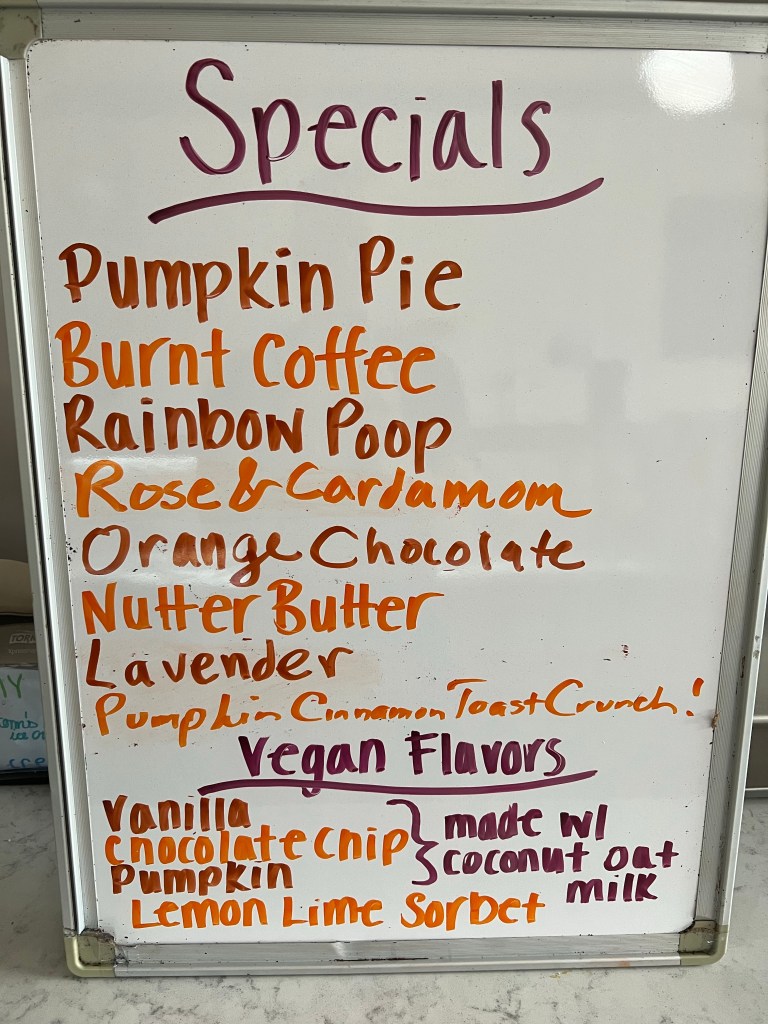 Specials
Pumpkin Pie
Burnt Coffee
Rainbow Poop
Rose & Cardamom
Orange Chocolate
Nutter Butter
Lavender
Pumpkin Cinnamon Toast Crunch!
Vegan Flavors
Vanilla
chocolate chip
Pumpkin
made w/
coconut oat
milk
Lemon Lime Sorbet